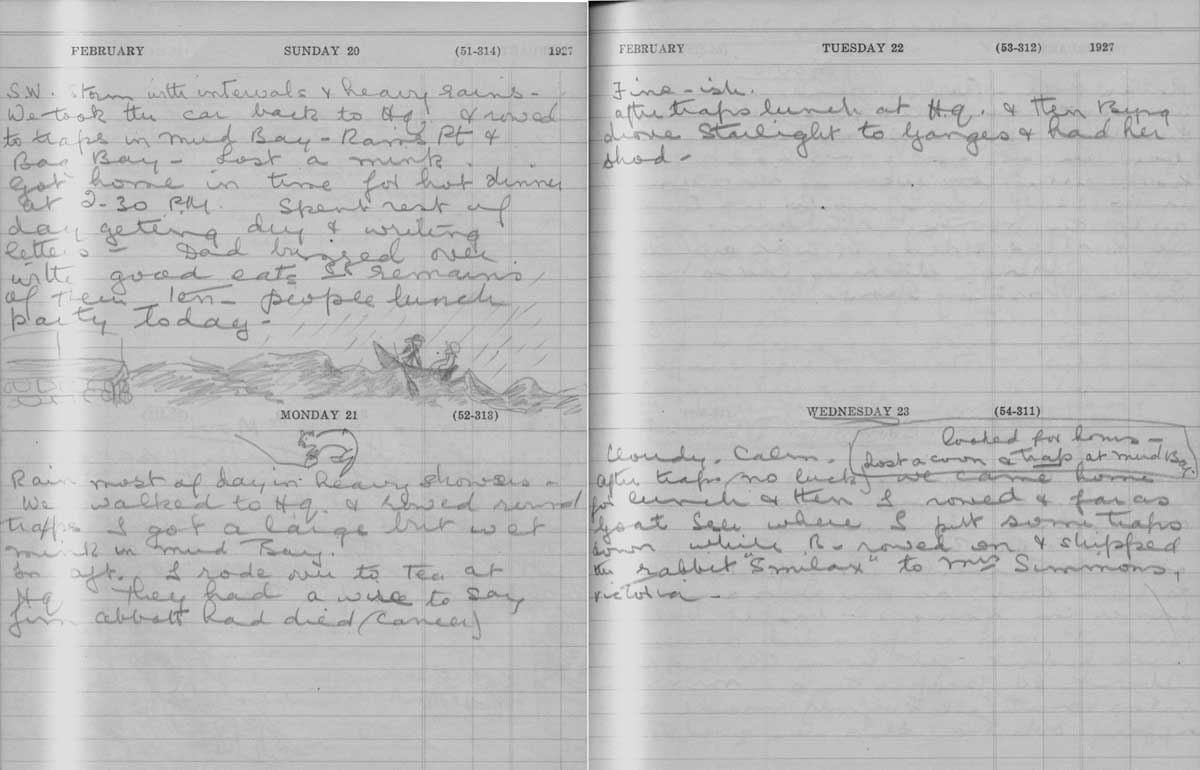 FEBRUARY SUNDAY 20 (51-314) 1927
S.W. Storm with intervals & heavy rains -
We took the car back to Hq. & rowed
to traps in Mud Bay - Rain's Pt &
Bay - Lost a mink.
Got home in time for hot dinner
at 2-30 P.M. Spent rest of
day geting dry & writing
letters - Dad buzzed over
with good eats remains
of their ten - people lunch
party today -
MONDAY 21 (52-313)
Rain most of day in heavy showers -
We walked to Hq. & rowed round
traps I got a large but wet
mink in Mud Bay.
In aft. I rode over to Tea at
Hq They had a wire to say
Jim Abbott had died (cancer)
FEBRUARY TUESDAY 22 (53-312) 1927
Fine - ish.
after traps lunch at Hq. & then Byng
drove Starlight to Ganges & had her
shod -
WEDNESDAY 23 (54-311)
looked for homs -
Cloudy. Calm. Lost a coon & trap at Mud Bay
after traps (no luck) we came home
for lunch & then I rowed & far as
Goat where I put some traps
down while B - rowed on & shipped
the rabbit "Smilax" to Mrs Simmons,
Victoria -